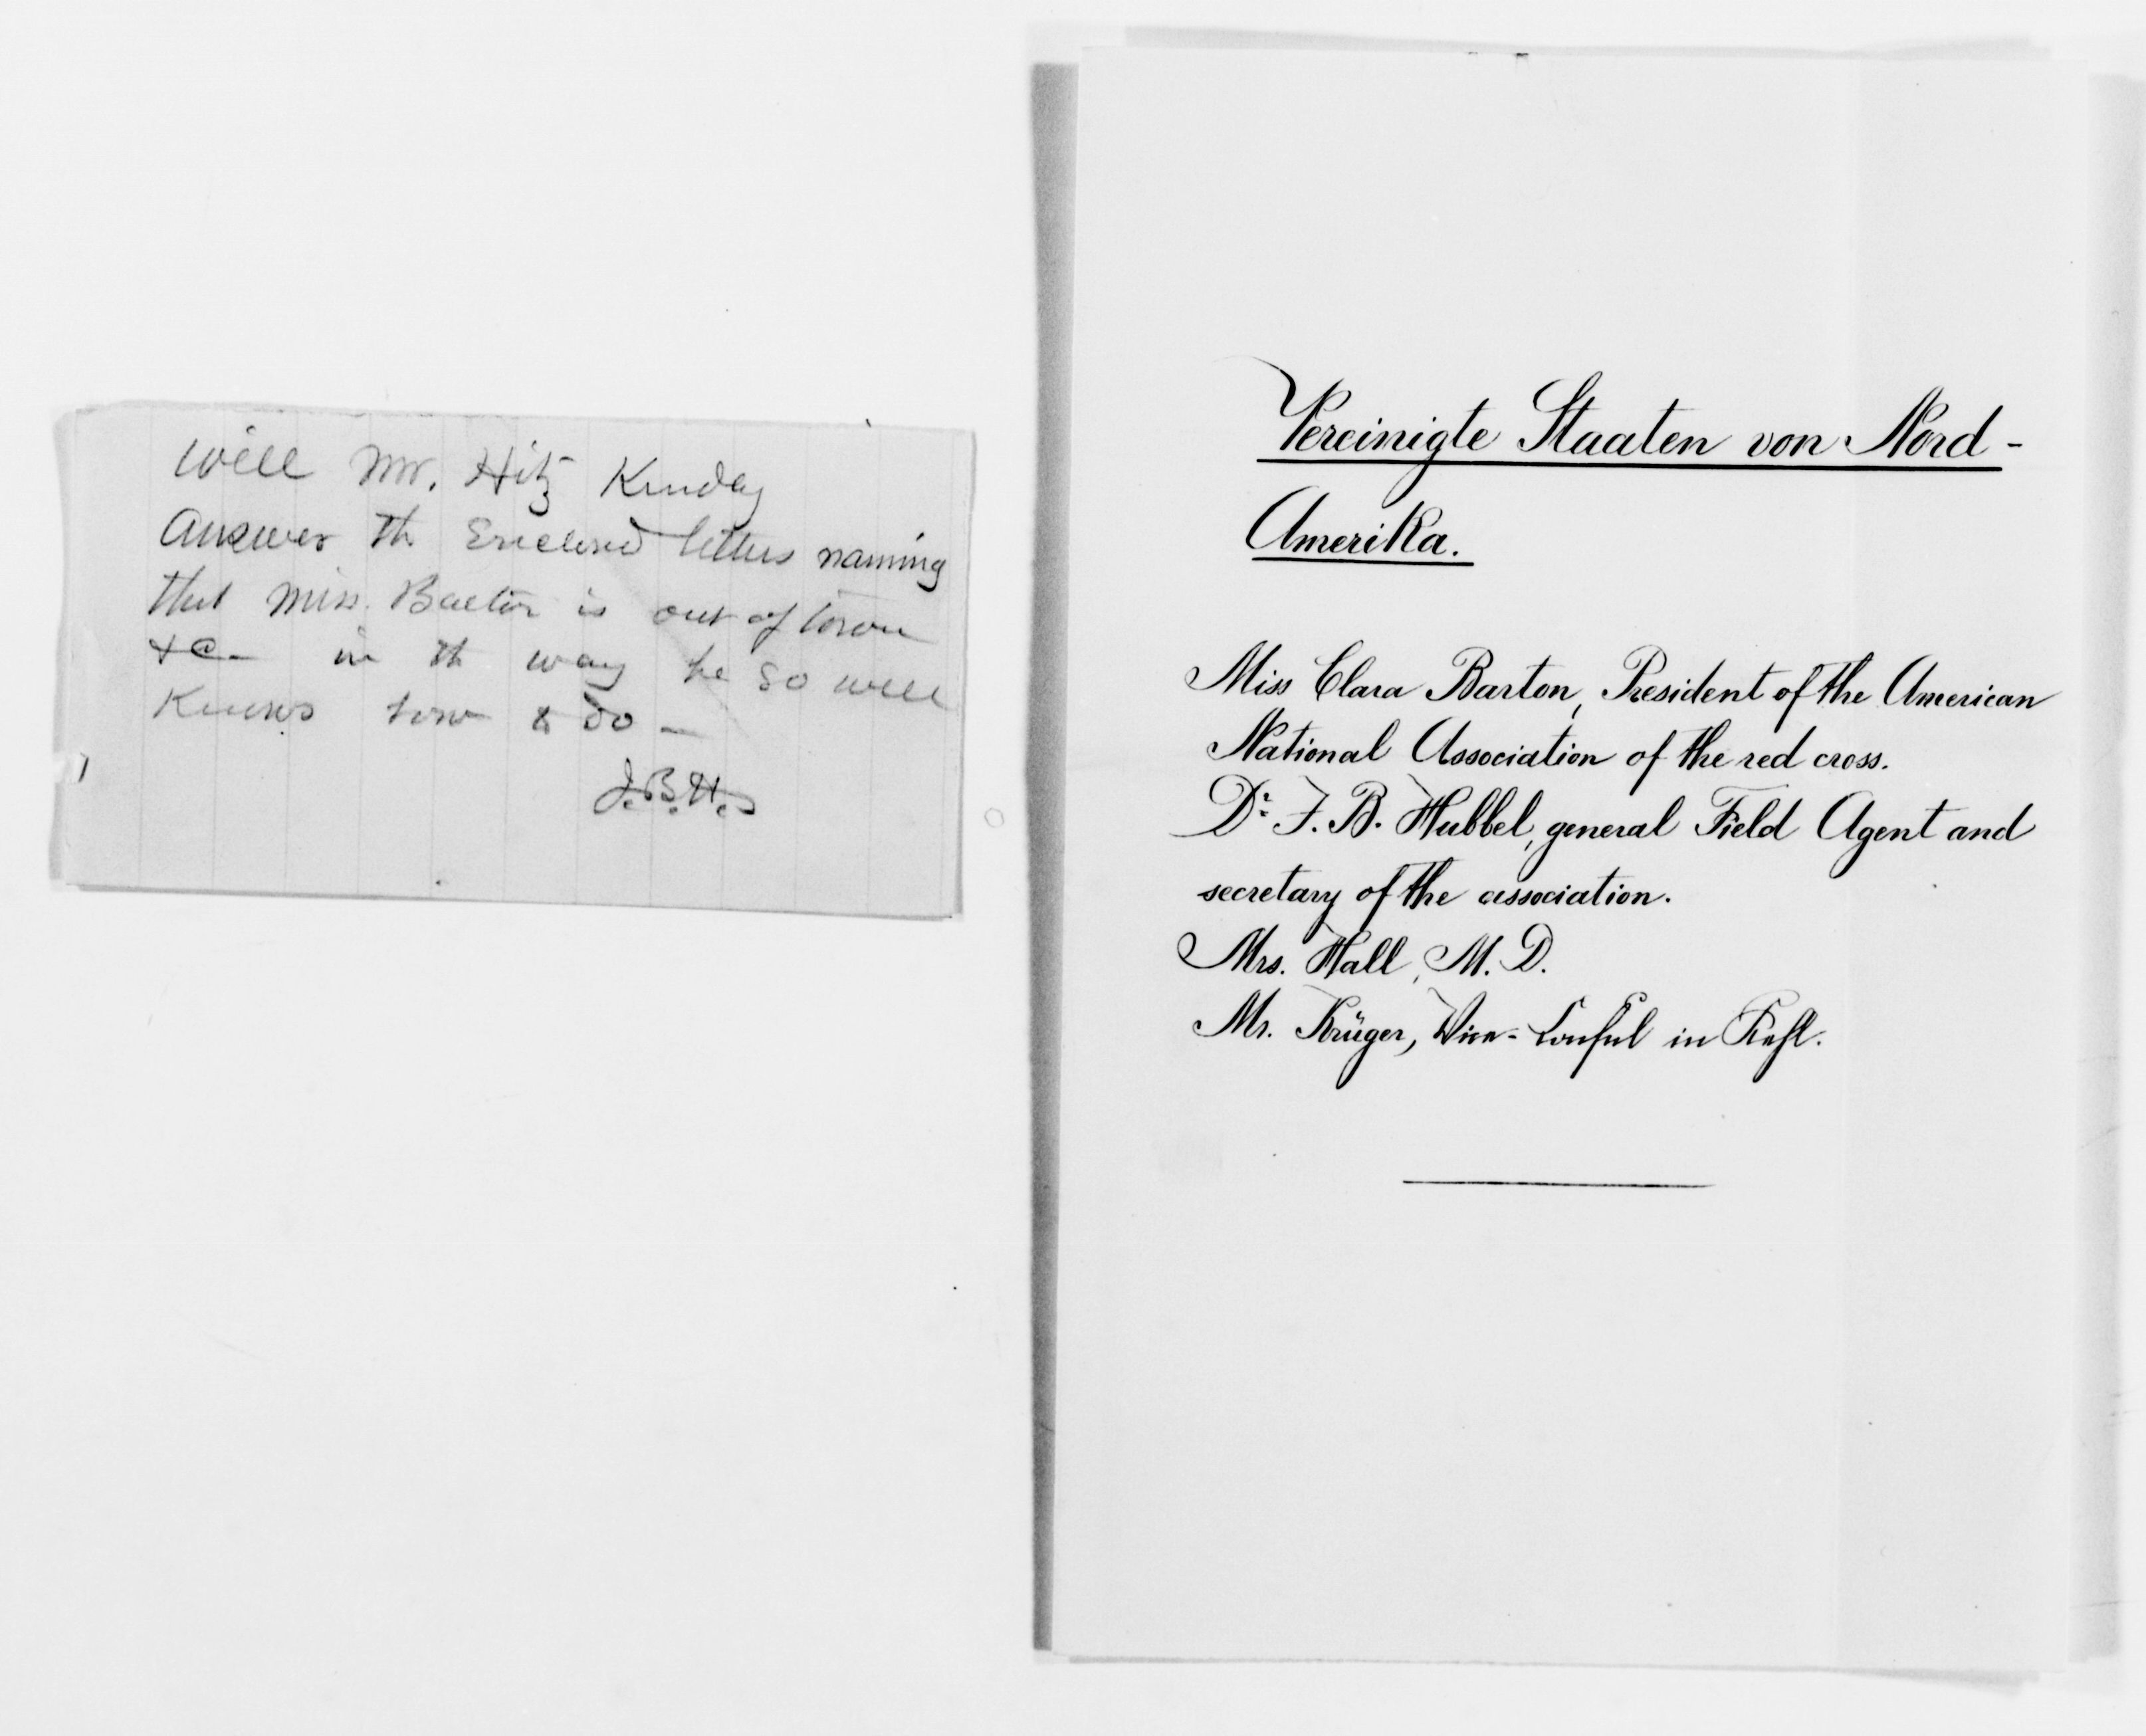 Will Mr. Hitz Kindly
answer th enclosed letters naming
that Miss. Barton is out of town
&c - in th way he so well
knows how to do -
J.B.H.
Vereinigte Staaten von Nord-
Amerika.
Miss Clara Barton, President of the American
National Association of the red cross.
Dr. J. B. Hubbel, general Field Agent and
secretary of the association.
Mrs. Hall, M. D.
Mr. Krüger, Vice-Consul in Kehl.